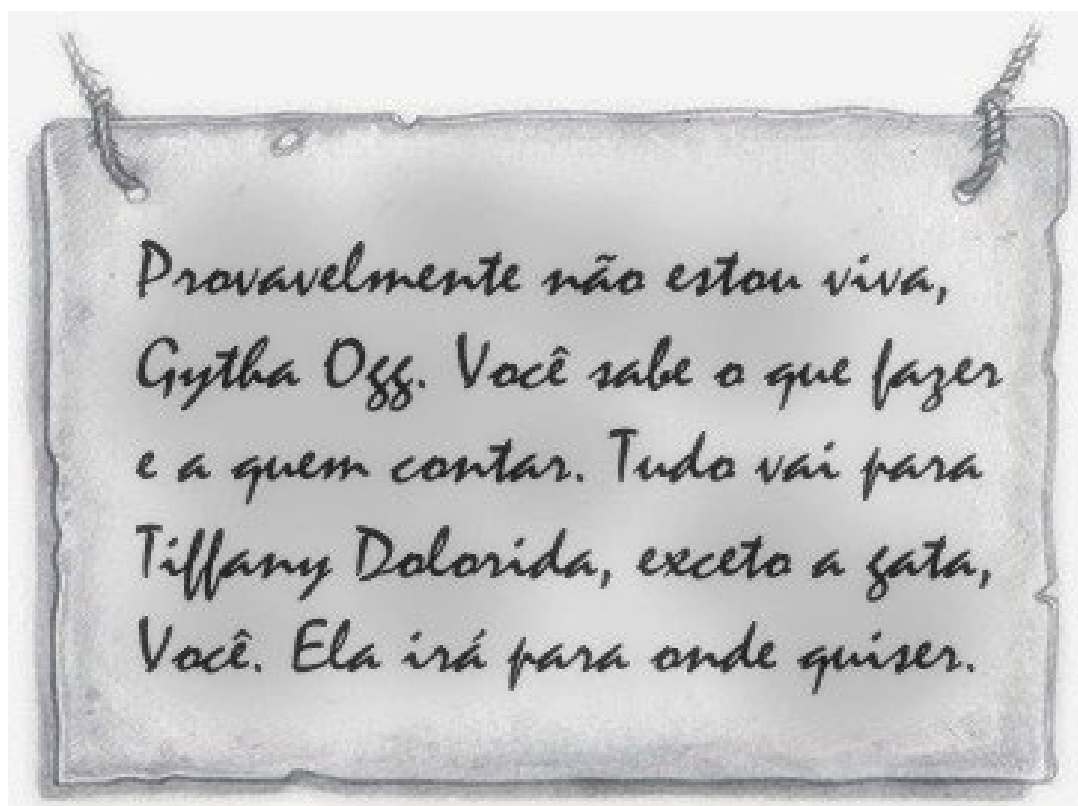 Provavelmente não estou viva,
Gytha Ogg. Você sabe o que fazer
e a quem contar. Tudo vai para
Tiffany Dolorida, exceto a gata,
Você. Ela irá para onde quiser.